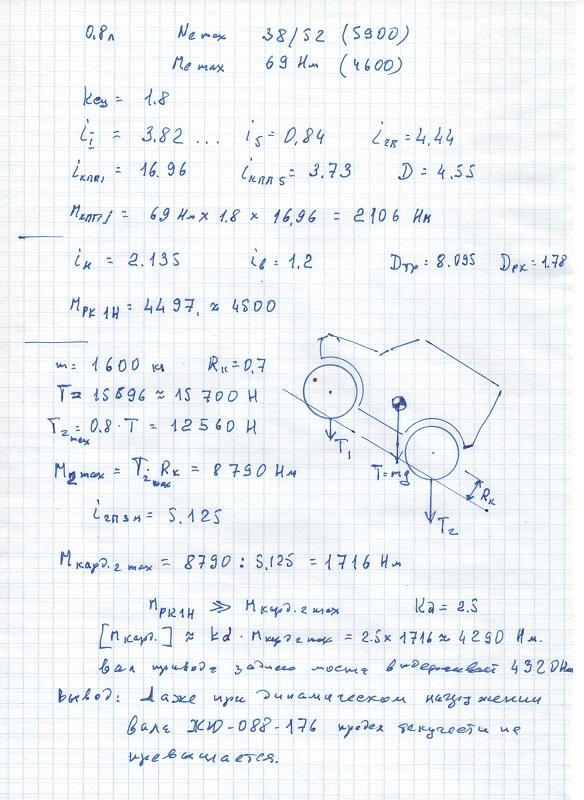 0,8л Ne max 38/52 (5900)
Me max 69 Нм (4600)
Kсц = 1.8
iI = 3.82 ... i5 = 0,84 iгп = 4,44
iкпп1 = 16.96 iкпп5 = 3.73 D = 4.55
Mкпп1 = 69 Нм x 1.8 x 16,96 = 2106 Нм
iн = 2.135 iв = 1.2 Dтр = 8.095 Dрк = 1.78
Mрк1н = 4497, ≈ 4500
m = 1600 кг Rк = 0,7
T = 15696 ≈ 15 700 Н
T2max = 0.8 · T = 12560 Н
M2max = T2max · Rк = 8790 Нм
iгпзм = 5.125
T1
T=mg
Rк
T2
Mкард.2max = 8790 : 5,125 = 1716 Нм
Mрк1н >> Mкард.2max Kd = 2.5
[Mкард.] ≈ kd · Mкард2max = 2.5 x 1716 ≈ 4290 Нм.
вал привода заднего моста выдерживает 4320Нм
Вывод: Даже при динамическом нагружении
вала ЖЮ-088-176 предел текучести не
превышается.